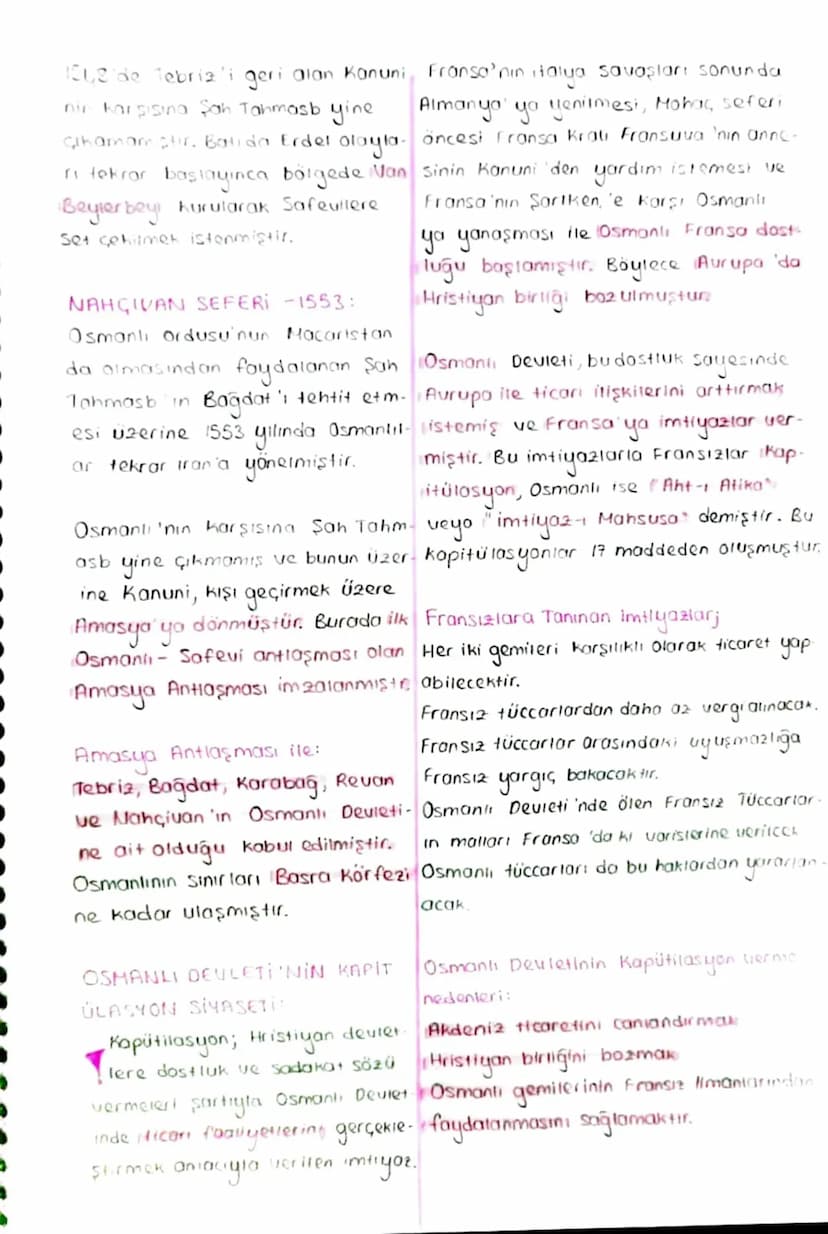 de Tebriz'i geri alan Kanuni
nin karşısına Şah Tahmasb yine
çıkamamıştır. Batıda Erdel olayla-
rı tekrar başlayınca bölgede Van
Beylerbeyi kurularak Safevilere
set çekilmek istenmiştir.
NAHÇIVAN SEFERİ -1553:
Osmanlı ordusu'nun Macaristan
da olmasından faydalanan Şah
Tahmasb'ın Bağdat'ı tehtit etm-
esi üzerine 1553 yılında Osmanlıl-
ar tekrar Iran'a yönelmiştir.
Osmanlı'nın karşısına Şah Tahm-
asb yine çıkmamış ve bunun üzer-
ine Kanuni, kışı geçirmek üzere
Amasya'ya dönmüştür. Burada ilk
Osmanlı - Safevi antlaşması olan
Amasya Antlaşması imzalanmıştır
Amasya Antlaşması ile:
Tebriz, Bağdat, Karabağ, Revan
ve Nahçivan'ın Osmanlı Devleti-
ne ait olduğu kabul edilmiştir.
Osmanlının sınırları Basra Körfezi
ne kadar ulaşmıştır.
OSMANLI DEVLETİ'NİN KAPİT
ÜLASYON SİYASETİ:
Kapütilasyon; Hristiyan devlet
lere dostluk ve sadakat sözü
vermeleri şartıyla Osmanlı Devlet
inde ticari faaliyetlerini gerçekle-
ştirmek amacıyla verilen imtiyaz.
Fransa'nın italya savaşları sonunda
Almanya'ya yenilmesi, Mohaç seferi
öncesi Fransa Kralı Fransuva'nın anne-
sinin Kanuni'den yardım istemesi ve
Fransa'nın Şarlken'e karşı Osmanlı
ya yanaşması ile Osmanlı Fransa dost-
luğu başlamıştır. Böylece Avrupa'da
Hristiyan birliği bozulmuştur
Osmanlı Devleti, bu dostluk sayesinde
Avrupa ile ticari ilişkilerini arttırmak
istemiş ve Fransa'ya imtiyazlar ver-
miştir. Bu imtiyazlarla Fransızlar Kap-
itülasyon, Osmanlı ise "Aht-ı Atika"
veya "imtiyaz-ı Mahsusa" demiştir. Bu
kapitülasyonlar 17 maddeden oluşmuştur.
Fransızlara Tanınan imtiyazlar;
Her iki gemileri karşılıklı olarak ticaret yap
abilecektir.
Fransız tüccarlardan daha az vergi alınacak.
Fransız tüccarlar arasındaki uyuşmazlığa
Fransız yargıç bakacaktır.
Osmanlı Devleti'nde ölen Fransız Tüccarlar-
ın malları Fransa'da ki varislerine verilecek
Osmanlı tüccarları da bu haklardan yararlan-
acak.
Osmanlı Devletinin Kapütilasyon verme
nedenleri:
Akdeniz ticaretini canlandırmak
Hristiyan birliğini bozmak
Osmanlı gemilerinin Fransız limanlarından
faydalanmasını sağlamaktır.